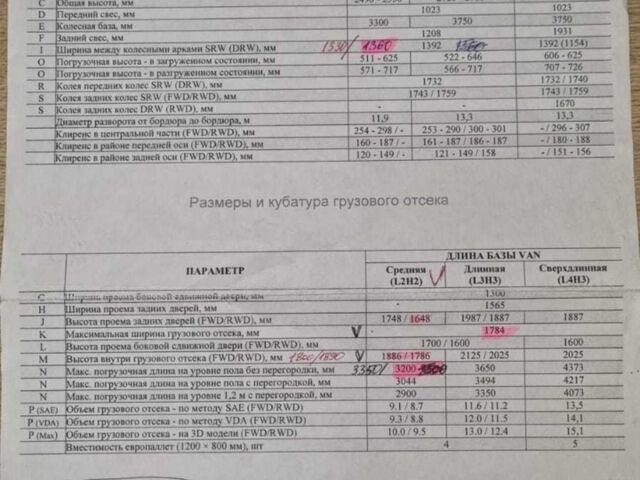 C Общая высота, мм
D Передний свес, мм 1023 1023
E Колесная база, мм 3300 3750 3750
F Задний свес, мм 1208 1931
I Ширина между колесными арками SRW (DRW), мм 1392 1392 (1154)
O Погрузочная высота - в загруженном состоянии, мм 511 - 625 522 - 646 606 - 625
O Погрузочная высота - в разгруженном состоянии, мм 571 - 717 566 - 717 707 - 726
R Колея передних колес SRW (DRW), мм 1732 1732 / 1740
S Колея задних колес SRW (FWD/RWD), мм 1743 / 1759 1743 / 1759
S Колея задних колес DRW (RWD), мм - - 1670
Диаметр разворота от бордюра до бордюра, м 11,9 13,3 13,3
Клиренс в центральной части (FWD/RWD), мм 254 - 298 / - 253 - 290 / 300 - 301 - / 296 - 307
Клиренс в районе передней оси (FWD/RWD), мм 160 - 187 / - 161 - 187 / 186 - 187 - / 180 - 188
Клиренс в районе задней оси (FWD/RWD), мм 120 - 149 / - 121 - 149 / 158 - / 151 - 156
Размеры и кубатура грузового отсека
ПАРАМЕТР ДЛИНА БАЗЫ VAN
Средняя (L2H2) Длинная (L3H3) Сверхдлинная (L4H3)
C Ширина проема боковой сдвижной двери, мм 1300
H Ширина проема задних дверей, мм - 1565
J Высота проема задних дверей (FWD/RWD), мм 1748 / 1648 1987 / 1887 1887
K Максимальная ширина грузового отсека, мм 1784
L Высота проема боковой сдвижной двери (FWD/RWD), мм 1700 / 1600 1600
M Высота внутри грузового отсека (FWD/RWD), мм 1800/1890 1886 / 1786 2125 / 2025 2025
N Макс. погрузочная длина на уровне пола без перегородки, мм 3350/ 3200 3650 4373
N Макс. погрузочная длина на уровне пола с перегородкой, мм 3044 3494 4217
N Макс. погрузочная длина на уровне 1,2 м с перегородкой, мм 2900 3350 4073
P (SAE) Объем грузового отсека - по методу SAE (FWD/RWD) 9.1 / 8.7 11.6 / 11.2 13,5
P (VDA) Объем грузового отсека - по методу VDA (FWD/RWD) 9.3 / 8.8 12.0 / 11.5 14,1
P (Max) Объем грузового отсека - на 3D модели (FWD/RWD) 10.0 / 9.5 13.0 / 12.4 15,1
Вместимость европаллет (1200 × 800 мм), шт 4 5